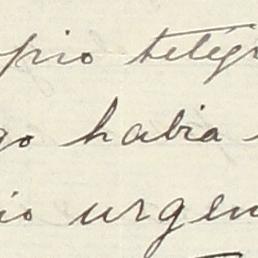 pio telégr
go habia
io urgen